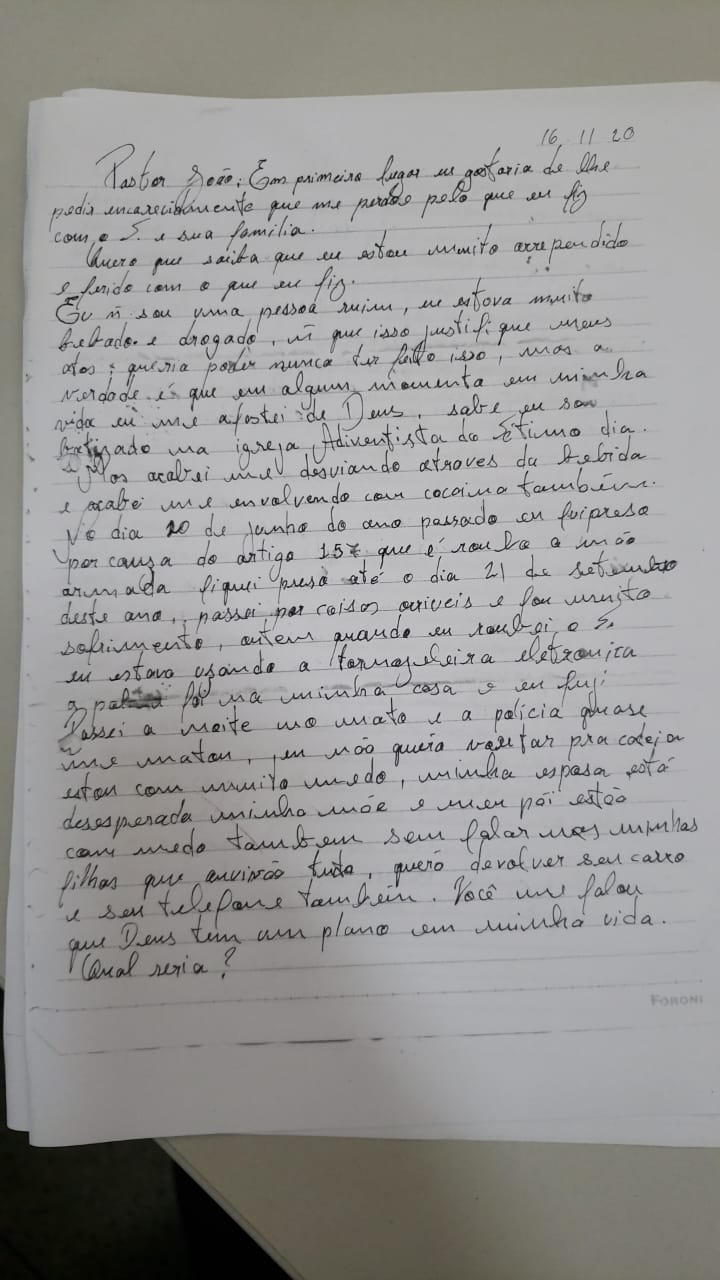 16 11 20
Pastor João; Em primeiro lugar eu gostaria de lhe
pedir encarecidamente que me perdoe pelo que eu fiz
com o S. e sua familia.
Quero que saiba que eu estou muito arrependido
e ferido com o que eu fiz.
Eu ñ sou uma pessoa ruim, eu estova muito
bebado e drogado, ñ que isso justifique meus
atos; queria poder nunca ter feito isso, mas a
verdade é que em algum momento em minha
vida eu me afastei de Deus, sabe eu sou
batizado na igreja Adiventista do Sétimo dia.
Mas acabei me desviando atraves da bebida
e acabei me envolvendo com cocaina também.
No dia 20 de junho do ano passado eu fui preso
por causa do artigo 157 que é roubo a mão
armada fiquei preso até o dia 21 de setembro
deste ano, passei por coisas orriveis e fou muito
sofrimento, ontem quando eu roubei o S.
eu estava usando a tornozeleira eletronica
a foi na minha casa e eu fugi
Passei a noite no mato e a policia quase
me matou, eu não quero voutar pra cadeia
estou com muito medo, minha esposa está
desesperada minha mãe e meu pai estão
com medo tambem sem falar nas minhas
filhas que ouvirão tudo, quero devolver seu carro
e seu telefone também. Você me falou
que Deus tem um plano em minha vida.
Qual seria?
FORONI